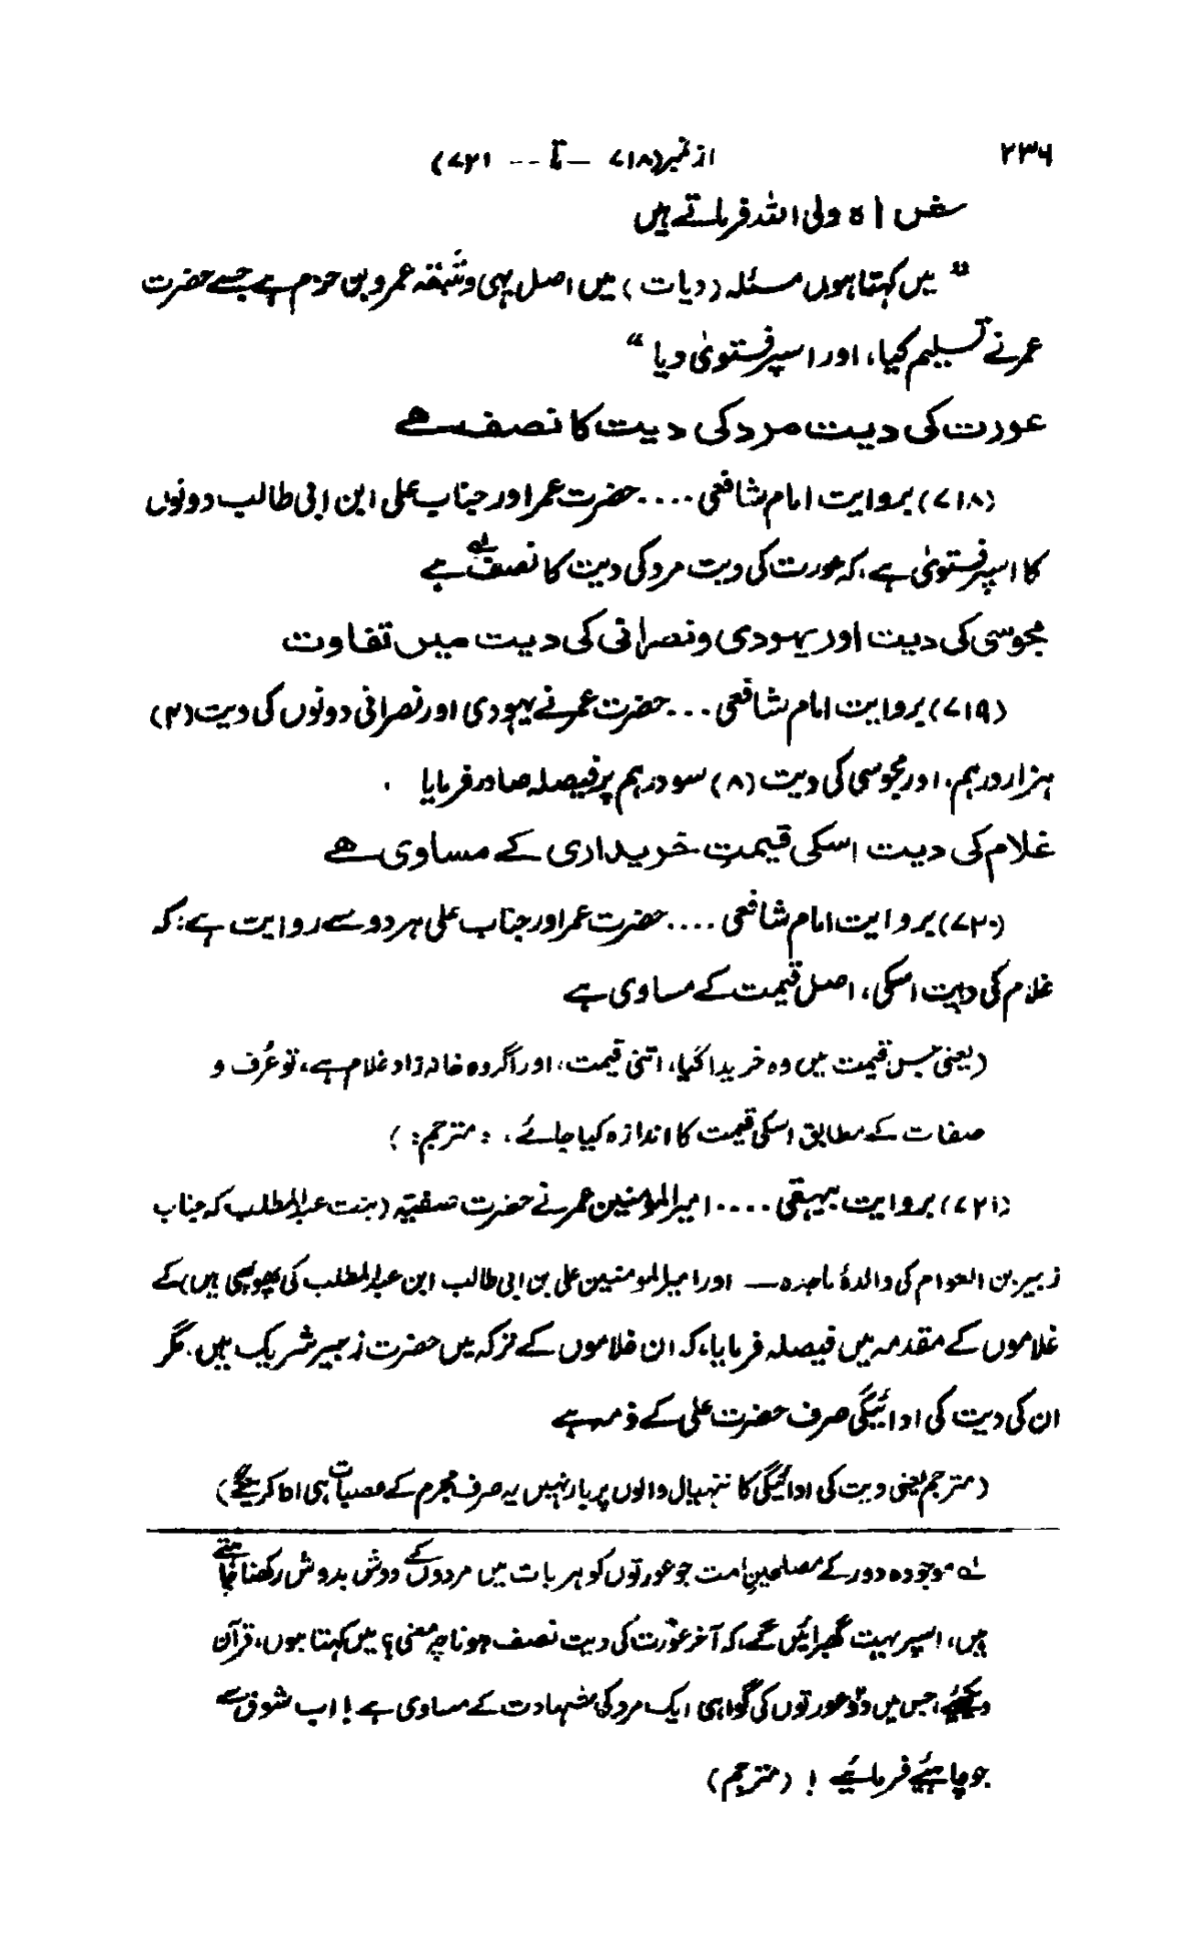 ۲۳۶ از نمبر (۷۱۸ – تا -- ۷۲۱)
شاہ ولی اللہ فرماتے ہیں
" میں کہتا ہوں مسئلہ (دیات) میں اصل یہی وثیقہ عمرو بن حزم ہے جسے حضرت
عمر نے تسلیم کیا، اور اسپر فتویٰ دیا "
عورت کی دیت مرد کی دیت کا نصف ہے
(۷۱۸) بروایت امام شافعی .... حضرت عمر اور جناب علی ابن ابی طالب دونوں
کا اسپر فتویٰ ہے، کہ عورت کی دیت مرد کی دیت کا نصف لہ ہے
مجوسی کی دیت اور یہودی و نصرانی کی دیت میں تفاوت
(۷۱۹) بروایت امام شافعی ... حضرت عمر نے یہودی اور نصرانی دونوں کی دیت (۴)
ہزار درہم، اور مجوسی کی دیت (۸) سو درہم پر فیصلہ صادر فرمایا
غلام کی دیت اسکی قیمتِ خریداری کے مساوی ہے
(۷۲۰) بروایت امام شافعی .... حضرت عمر اور جناب علی ہر دو سے روایت ہے: کہ
غلام کی دیت اسکی، اصل قیمت کے مساوی ہے
(یعنی جس قیمت میں وہ خریدا گیا، اتنی قیمت، اور اگر وہ خانہ زاد غلام ہے، تو عُرف و
صفات کے مطابق اسکی قیمت کا اندازہ کیا جائے، : مترجم: )
(۷۲۱) بروایت بیہقی ..... امیر المؤمنین عمر نے حضرت صفیہ (بنت عبدالمطلب کہ جناب
زبیر بن العوام کی والدۂ ماجدہ — اور امیر المومنین علی بن ابی طالب ابن عبدالمطلب کی پھوپھی ہیں) کے
غلاموں کے مقدمہ میں فیصلہ فرمایا، کہ ان غلاموں کے ترکہ میں حضرت زبیر شریک ہیں. مگر
ان کی دیت کی ادائیگی صرف حضرت علی کے ذمہ ہے
(مترجم یعنی دیت کی ادائیگی کا ننہیال والوں پر بار نہیں یہ صرف مجرم کے عصبات ہی ادا کرینگے)
لہ موجودہ دور کے مصلحینِ امت جو عورتوں کو ہر بات میں مردوں کے دوش بدوش رکھنا چاہتے
ہیں، اسپر بہت گھبرائیں گے، کہ آخر عورت کی دیت نصف ہونا چہ معنی؟ میں کہتا ہوں، قرآن
دیکھئے، جس میں دو عورتوں کی گواہی ایک مرد کی شہادت کے مساوی ہے! اب شوق سے
جو چاہئیے فرمائیے ! (مترجم)